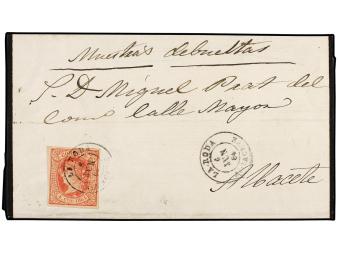 Muestras debueltas
S. D Miguel Prat del
comº Calle Mayor
LA RODA
Albacete